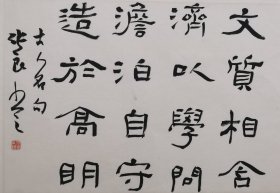 文质相含
濟以學問
澹泊自守
造於高明
古人名句